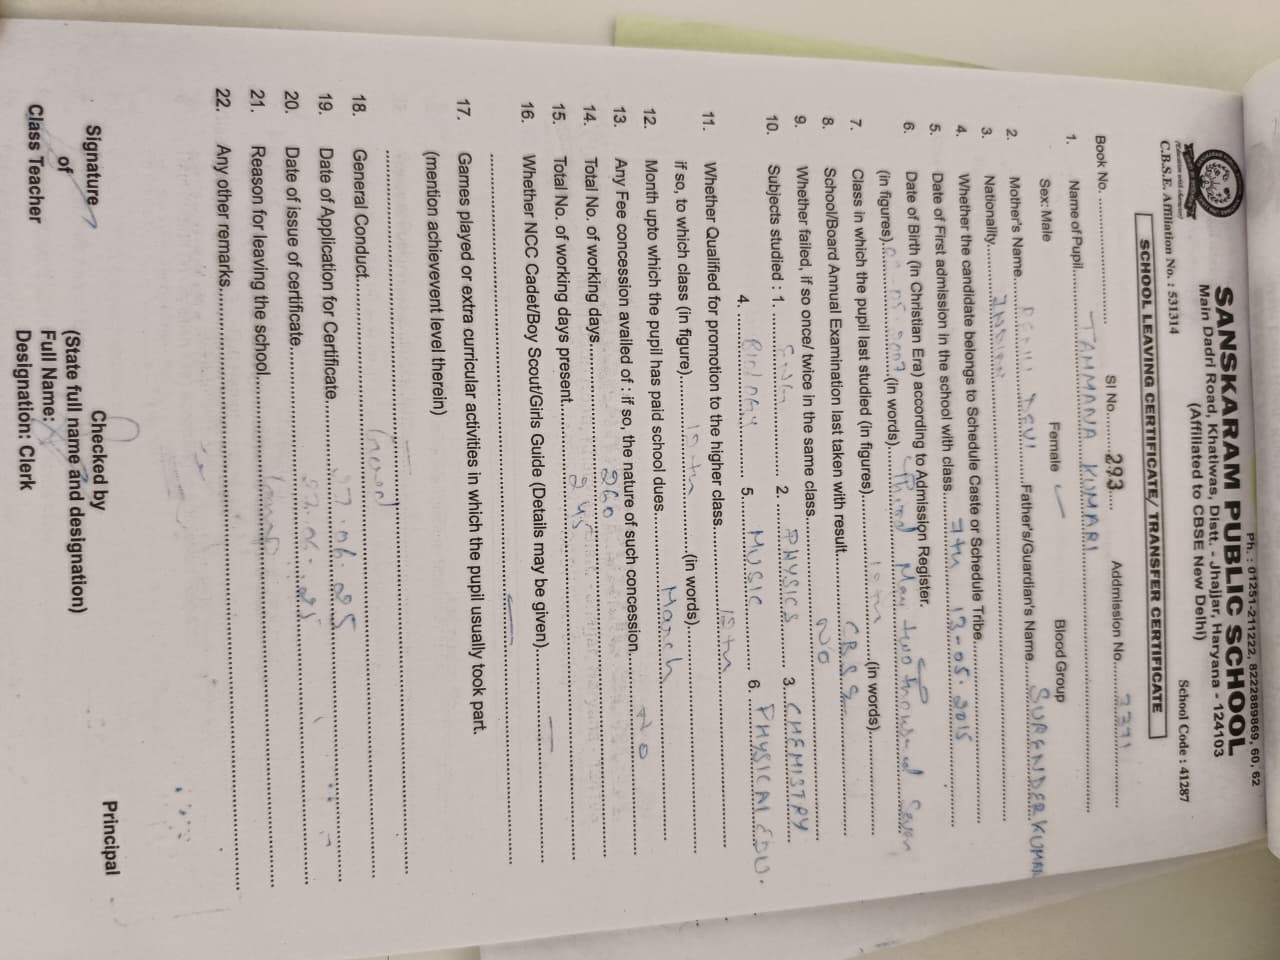 Ph. : 01251-211222, 8222889869, 60, 62
SANSKARAM PUBLIC SCHOOL
Main Dadri Road, Khatiwas, Distt. - Jhajjar, Haryana - 124103
(Affiliated to CBSE New Delhi)
C.B.S.E. Affiliation No. : 531314 School Code : 41287
SCHOOL LEAVING CERTIFICATE/ TRANSFER CERTIFICATE
Book No. Sl No. 293 Addmission No.
1. Name of Pupil TAMMANA KUMARI
Sex: Male Female ✓ Blood Group
2. Mother's Name DEVI Father's/Guardian's Name SURENDER KUMAR
3. Nationality INDIAN
4. Whether the candidate belongs to Schedule Caste or Schedule Tribe
5. Date of First admission in the school with class 7th 13-05-2015
6. Date of Birth (in Christian Era) according to Admission Register.
(in figures) (in words) Third May two thousand Seven
7. Class in which the pupil last studied (in figures) (in words)
8. School/Board Annual Examination last taken with result. CBSE
9. Whether failed, if so once/ twice in the same class NO
10. Subjects studied : 1. 2. PHYSICS 3. CHEMISTRY
4. BIOLOGY 5. MUSIC 6. PHYSICAL EDU.
11. Whether Qualified for promotion to the higher class
if so, to which class (in figure) (in words)
12. Month upto which the pupil has paid school dues March
13. Any Fee concession availed of : if so, the nature of such concession No
14. Total No. of working days 260
15. Total No. of working days present 245
16. Whether NCC Cadet/Boy Scout/Girls Guide (Details may be given) —
17. Games played or extra curricular activities in which the pupil usually took part.
(mention achievevent level therein)
18. General Conduct Good
19. Date of Application for Certificate
20. Date of issue of certificate
21. Reason for leaving the school
22. Any other remarks
Signature
of
Class Teacher
Checked by
(State full name and designation)
Full Name:
Designation: Clerk
Principal